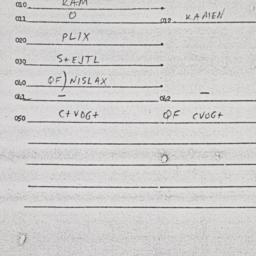 010 KAM
011 O 012 KAMEN
020 PLIX
030 S+EJTL
040 QF) NISLAX
041 - 042 -
050 C+VOG+ QF CVOG+